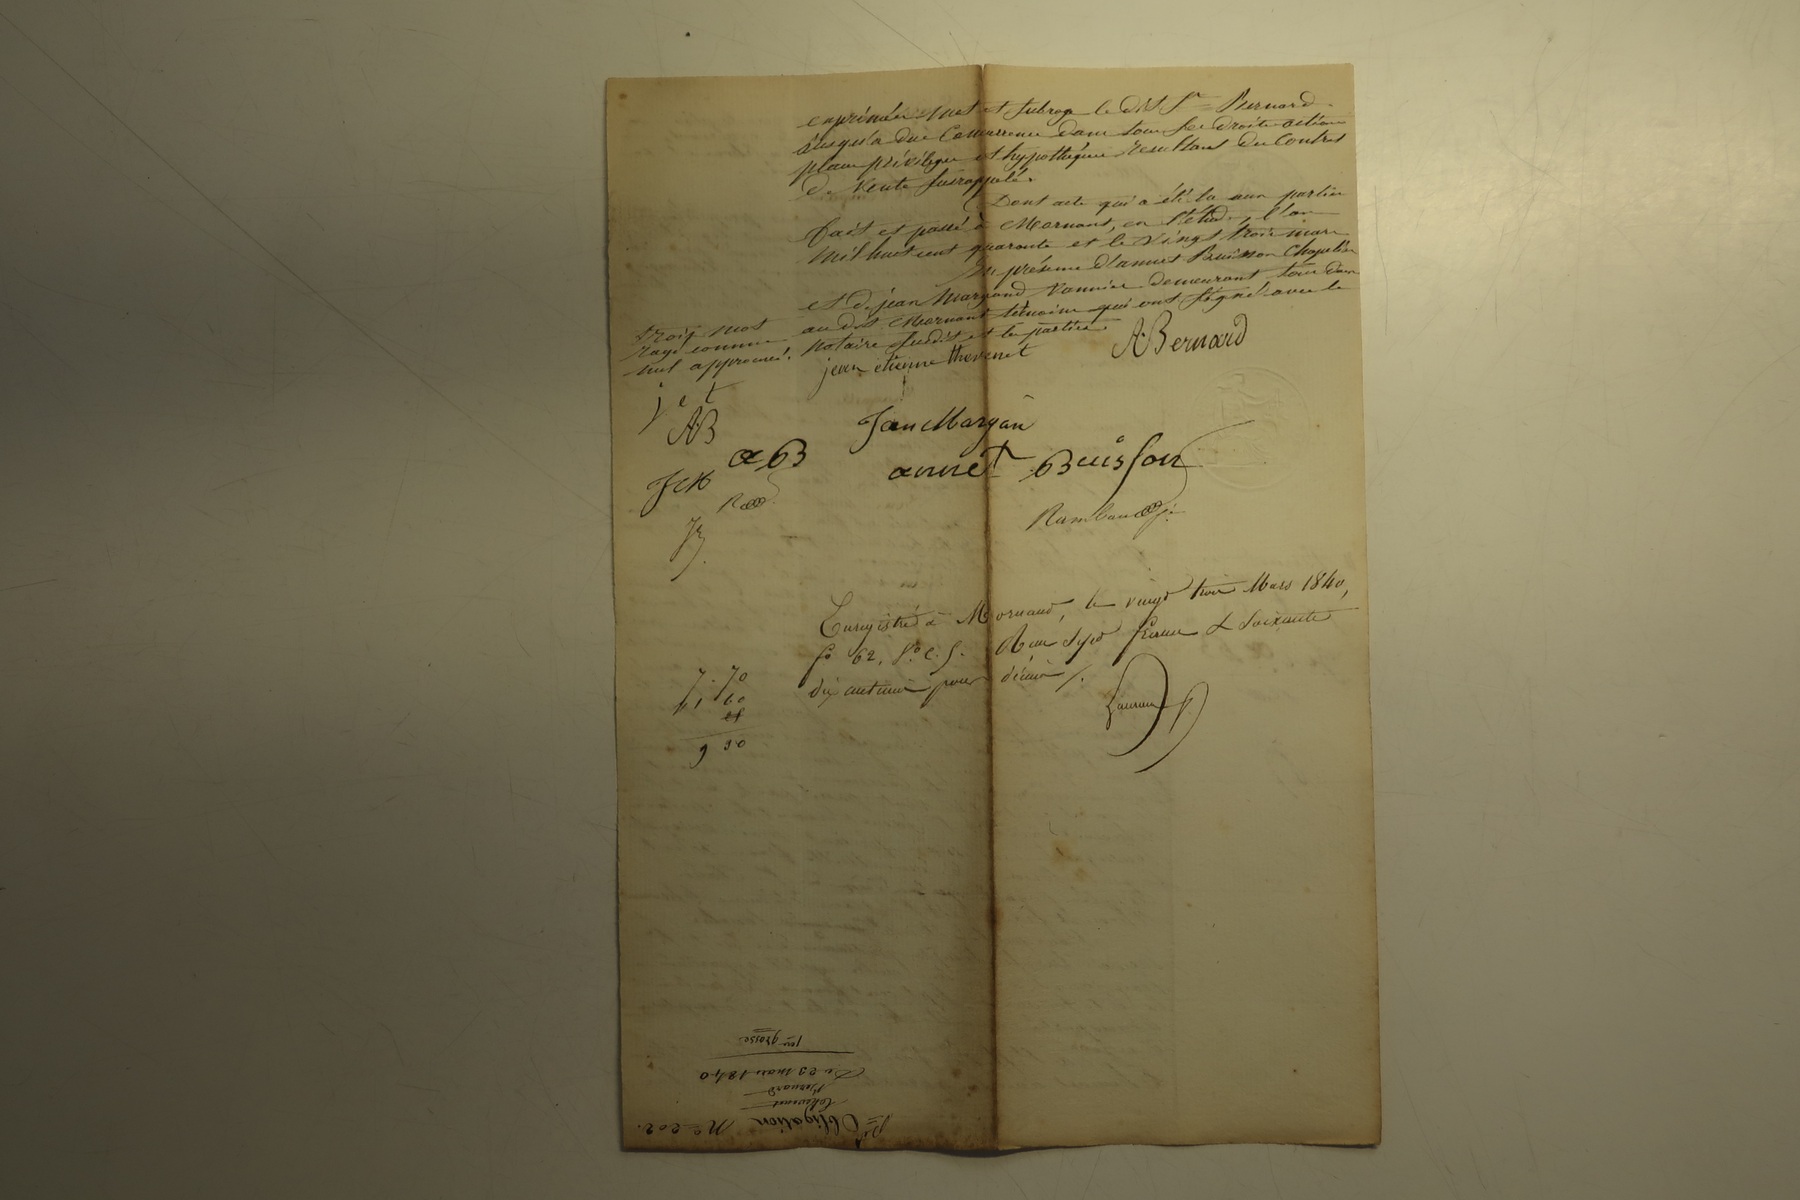 exprimée, met et subroge le dit Sr Bernard
jusqu'à due Concurrence dans tous ses droits actions
place privilèges et hypothèques resultant du Contrat
de Vente susrappelé.
Dont acte qui a été lu aux parties
fait et passé à Mornant, en l'étude, l'an
mil huit cent quarante et le vingt trois mars
En présence d'annet Buisson Chapelier
et de jean Margand Vannier demeurant tous deux
au dit Mornant témoins qui ont signé avec le
notaire susdit et les parties
trois mots
rayés comme
nul approuvés.
jean étienne thevenet
A. Bernard
j e t
AB
Jean Margan
a B
annet Buisson
Enregistré à Mornant, le vingt trois Mars 1840,
fo 62, Ro. C. 5. Reçu Sept francs & Soixante
dix centimes pour décime /.
7. 70
9 90
Obligation
Thevenet
Bernard
Du 23 mars 1840
1ere grosse